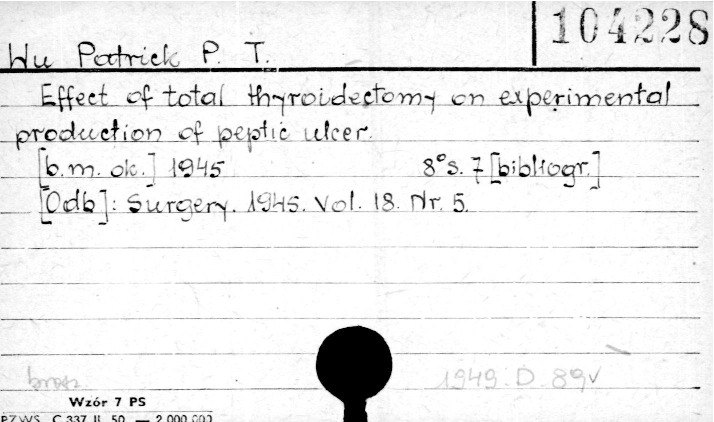 104228
Wu Patrick P. T.
Effect of total thyroidectomy on experimental
production of peptic ulcer.
[b.m. ok.] 1945 8°s. 7 [bibliogr.]
[Odb]: Surgery. 1945. Vol. 18. Nr. 5.
brosz
1949. D. 89v
Wzór 7 PS
PZWS. C 337 II. 50. — 2 000 000